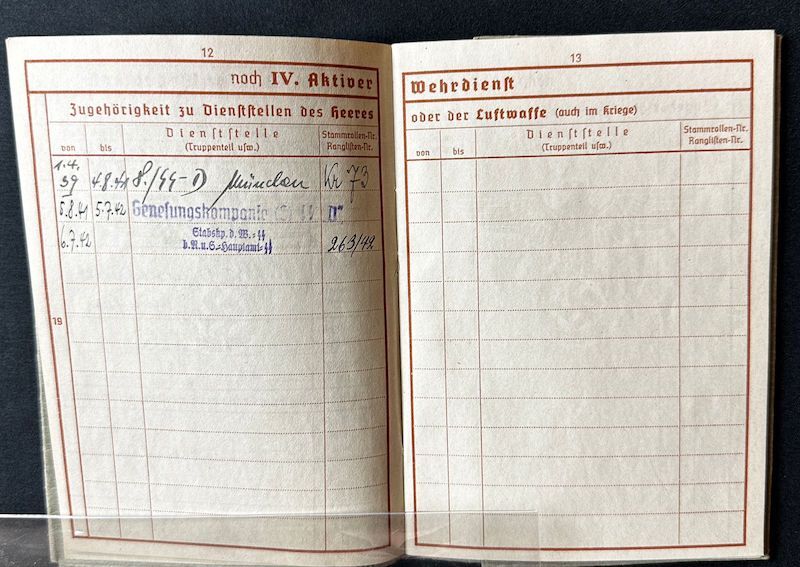 12
noch IV. Aktiver
Zugehörigkeit zu Dienststellen des Heeres
von
bis
Dienststelle
(Truppenteil usw.)
Stammrollen-Nr.
Ranglisten-Nr.
1.4.
39 4.8.41 8./SS-D München Kr 73
5.8.41 5.7.42 Genesungskompanie SS „D“
6.7.42 Stabskp. d. W.-SS
b. R.u.S.-Hauptamt-SS 263/42
19
13
Wehrdienst
oder der Luftwaffe (auch im Kriege)
von
bis
Dienststelle
(Truppenteil usw.)
Stammrollen-Nr.
Ranglisten-Nr.